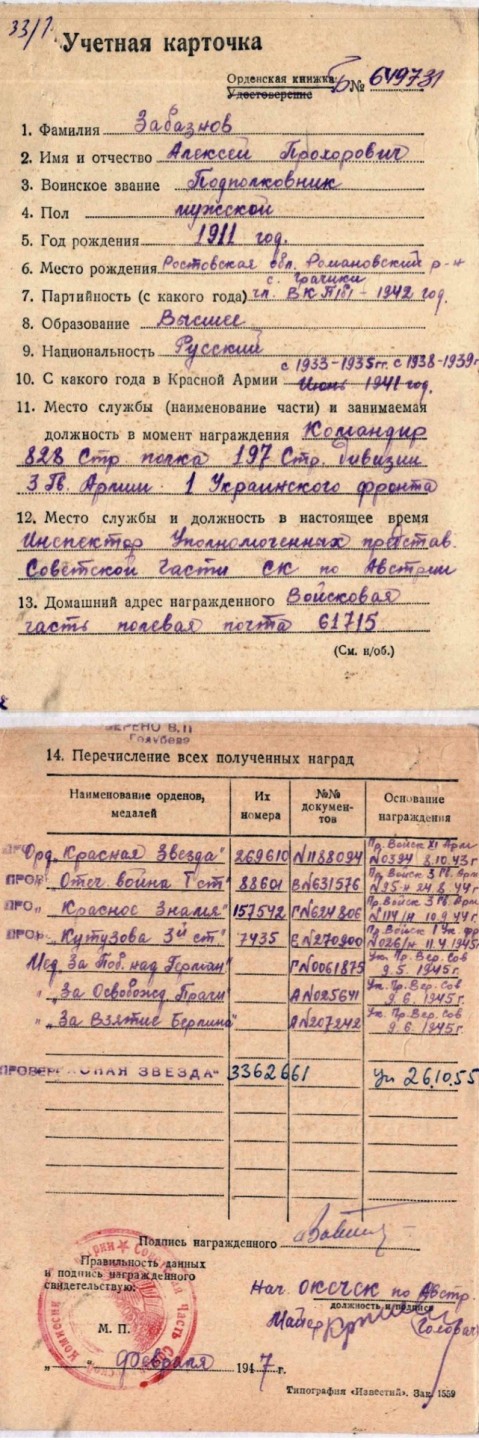 33/1.
Учетная карточка
Орденская книжка Б № 649731
Удостоверение
1. Фамилия Забазнов
2. Имя и отчество Алексей Прохорович
3. Воинское звание Подполковник
4. Пол мужской
5. Год рождения 1911 год.
6. Место рождения Ростовская обл. Романовский р-н
с. Грачики
7. Партийность (с какого года) чл. ВКП/б/ - 1942 год.
8. Образование Высшее
9. Национальность Русский
с 1933-1935гг. с 1938-1939г
10. С какого года в Красной Армии Июнь 1941 год.
11. Место службы (наименование части) и занимаемая
должность в момент награждения Командир
828 Стр полка 197 Стр. дивизии
3 Гв. Армии 1 Украинского фронта
12. Место службы и должность в настоящее время
Инспектор Уполномоченных представ.
Советской Части СК по Австрии
13. Домашний адрес награжденного Войсковая
часть полевая почта 61715
(См. н/об.)
14. Перечисление всех полученных наград
Наименование орденов, медалей Их номера №№ документов Основание награждения
Орд. "Красная Звезда" 269610 №1188094 Пр. Войск XI Арм №0394 8.10.43г
" Отеч. война I ст" 88601 В№631576 Пр. Войск 3 Гв. Арм №95-н 24.8.44г
" Красное Знамя" 157542 Г№624806 Пр. Войск 3 Гв. Арм №114/н 10.9.44г
" Кутузова 3й ст" 7435 Е№270900 Пр. Войск 1 Ук. фр №026/н 11.4.1945г
Мед. За Поб. над Герман" Г№0061875 Ук. Пр. Вер. Сов 9.5.1945г.
" "За Освобожд. Праги" А№025641 Ук. Пр. Вер. Сов 9.6.1945г.
" "За Взятие Берлина" А№207242 Ук. Пр. Вер. Сов 9.6.1945г.
КРАСНАЯ ЗВЕЗДА" 3362661 Ук 26.10.55
Подпись награжденного
Правильность данных
и подпись награжденного
свидетельствую:
Нач. ОКСЧСК по Австр.
должность и подпись
М. П.
Майор
" " Февраля 1947 г.
Типография «Известий». Зак. 1559